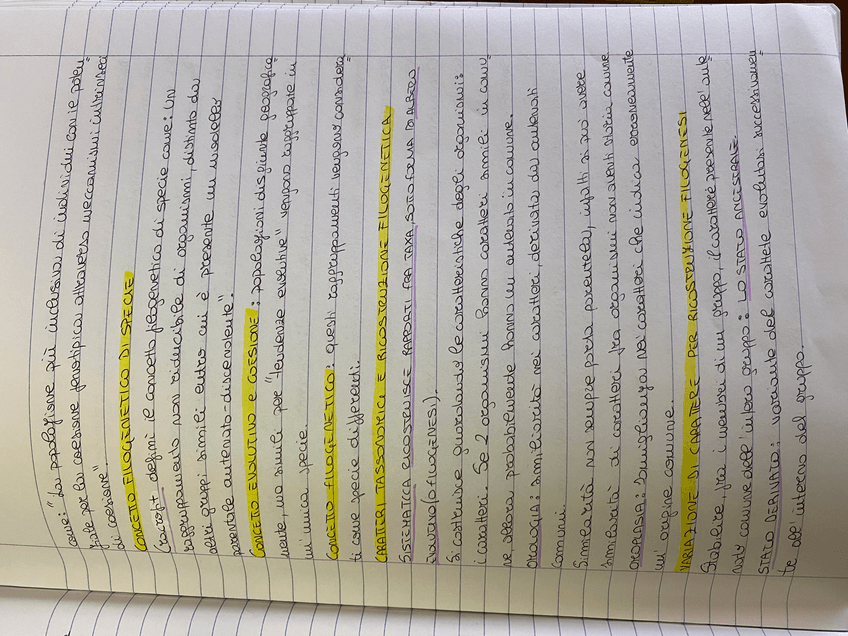 come: "La popolazione più inclusiva di individui con le poten=
ziale per la coesione fenotipica attraverso meccanismi intrinseci
di coesione"
CONCETTO FILOGENETICO DI SPECIE
Cracraft definì il concetto filogenetico di specie come: un
raggruppamento non riducibile di organismi, distinto da
altri gruppi simili entro cui è presente un modello
parentale antenato-discendente".
CONCETTO EVOLUTIVO E COESIONE: popolazioni disgiunte geografica
mente, ma simili per "tendenze evolutive" vengono raggruppate in
un'unica specie.
CONCETTO FILOGENETICO: questi raggruppamenti vengono considera
ti come specie differenti.
CARATTERI TASSONOMICI E RICOSTRUZIONE FILOGENETICA
SISTEMATICA RICOSTRUISCE RAPPORTI FRA TAXA, SOTTO FORMA DI ALBERO
EVOLUTIVO (O FILOGENESI).
Si costruisce guardando le caratteristiche degli organismi:
i caratteri. Se 2 organismi hanno caratteri simili in comu=
ne allora probabilmente hanno un antenato in comune.
OMOLOGIA: similarità nei caratteri derivata da antenati
comuni.
Similarità non sempre porta parentela, infatti si può avere
similarità di caratteri fra organismi non aventi storia comune
OMOPLASIA: Somiglianza nei caratteri che indica erroneamente
un'origine comune.
VARIAZIONE DI CARATTERE PER RICOSTRUZIONE FILOGENESI
Stabilire, fra i membri di un gruppo, il carattere presente nell'ante
nato comune dell'intero gruppo: LO STATO ANCESTRALE.
STATO DERIVATO: variante del carattere evolutasi successivamen=
te all'interno del gruppo.